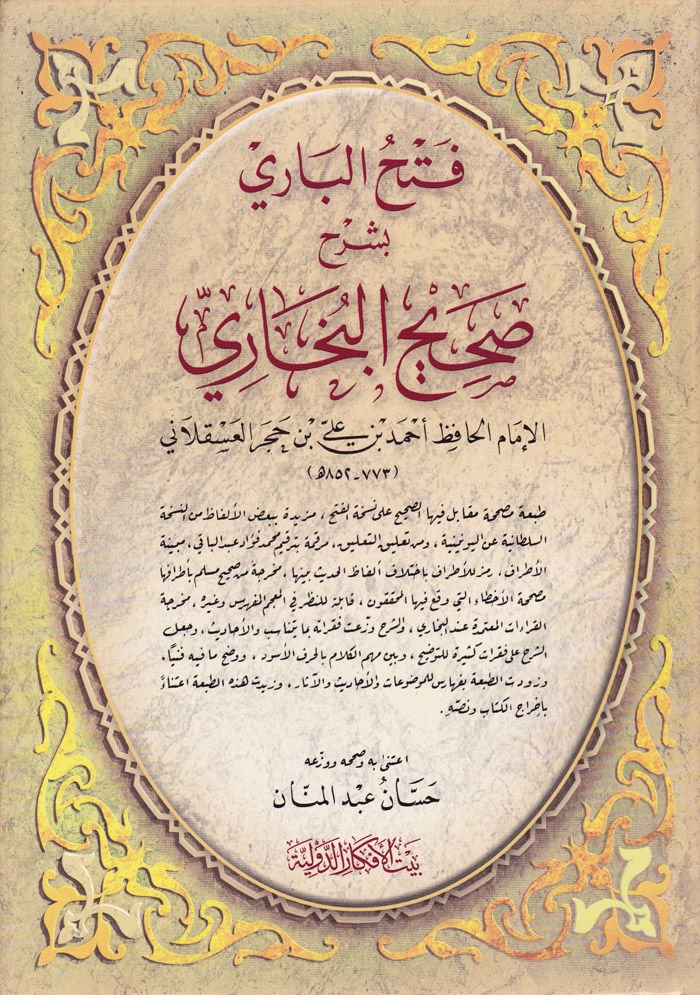 فَتْحُ البَارِيْ
بشرح
صَحِيْحِ البُخَارِيِّ
الإمَام الحَافِظ أحْمَد بْن عَلِيّ بْن حَجَر العَسْقلَاني
(٧٧٣-٨٥٢ھ)
طبعة مصححة مقابل فيها الصحيح على نسخة الفتح ، مزيدة ببعض الألفاظ من النسخة
السلطانية عن اليونينية ، ومن تعليق التعليق، مرقمة بترقيم محمد فؤاد عبد الباقي ، مبينة
الأطراف ، رمز للأطراف باختلاف ألفاظ الحديث بينها ، مخرجة من صحيح مسلم بأطرافها
مصححة الأخطاء التي وقع فيها المحققون ، قابلة للنظر في المعجم المفهرس وغيره ، مخرجة
القراءات المعتمدة عند البخاري ، والشرح وزّعت فقراته بما يتناسب والأحاديث ، وجعل
الشرح على فقرات كثيرة للتوضيح ، وبين مهم الكلام بالحرف الأسود ، ووضح ما فيه فنياً .
وزودت الطبعة بفهارس للموضوعات والأحاديث والآثار ، وزيدت هذه الطبعة اعتناءً
بإخراج الكتاب ونصّه .
اعتنى به وصححه ووزّعه
حَسَّانُ عَبْد المنَّان
بَيْت الأفكَار الدَّوْليَّة